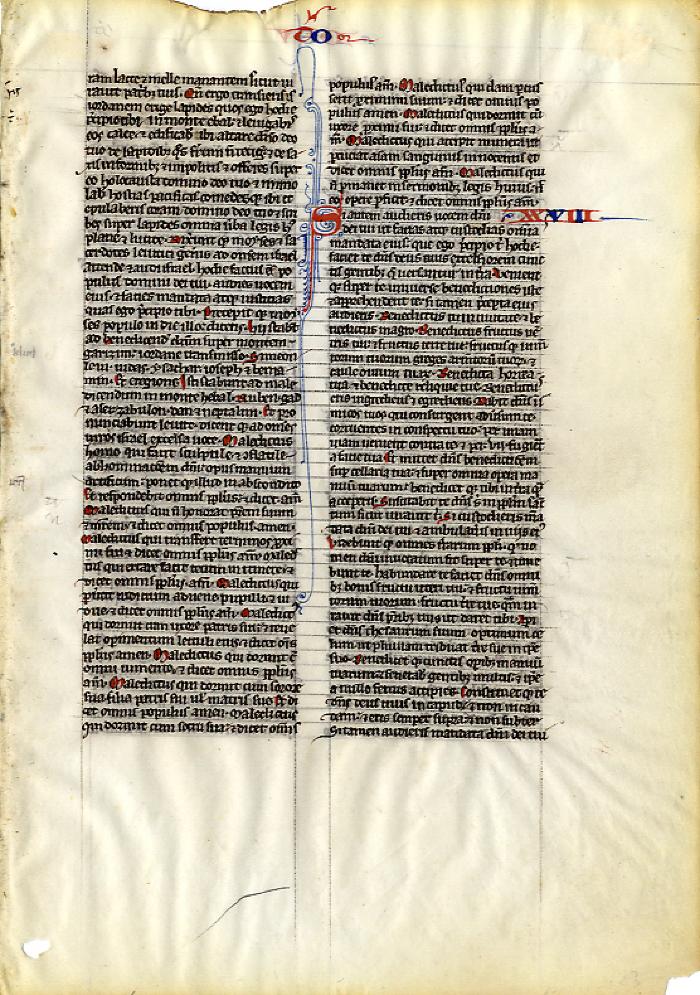 ram lacte ⁊ melle manantem sicut iu
rauit patribꝫ tuis. Qn̄ ergo transieritis
iordanem erige lapides quos ego hodie
p̄cipio tibi in monte ebal ⁊ leuigabis
eos calce ⁊ edificabis ibi altare dn̄o deo
tuo de lapidibꝫ
informibꝫ ⁊ impolitis ⁊ offeres super
eo holocausta domino deo tuo ⁊ immo
labis hostias pacificas comedesqꝫ ibi ⁊
epulaberis coram domino deo tuo ⁊ scri
bes super lapides omnia uerba legis hꝰ
plane ⁊ lucide. Dixerunt qꝫ moyses ⁊ sa
cerdotes leuitici generis ad omnem israhel
attende ⁊ audi israhel hodie factus es po
pulus domini dei tui audies uocem
eius ⁊ facies mandata atqꝫ iusticias
quas ego p̄cipio tibi. Precepit qꝫ moy
ses populo in die illo dicens. hii stabūt
ad benedicendum super montem
garizim iordane transmisso. Simeon
leui iudas ysachar ioseph ⁊ benia
min. Et e regione isti stabunt ad male
dicendum in monte hebal. Ruben gad
⁊ aser zabulon dan ⁊ neptalim. Et pro
nunciabunt leuite. dicent qꝫ ad omnes
uiros israel excelsa uoce. Maledictus
homo qui facit sculptile ⁊ conflatile
abhominationem dn̄i opus manuum
artificum. ponet qꝫ illud in abscondito
Et respondebit omnis ppl̄us ⁊ dicet am̄
Maledictus qui n̄ honorat patrem suum
⁊ matrem ⁊ dicet omnis populus amen.
Maledictus qui transfert terminos proxi
mi sui ⁊ dicet omnis ppl̄us am̄. Maledic
tus qui errare facit cecum in itinere ⁊
dicet omnis ppl̄us am̄. Maledictus qui
puertit iudicium aduene pupilli ⁊ ui
due. ⁊ dicet omnis ppl̄us am̄. Maledictꝰ
qui dormit cum uxore patris sui ⁊ reue
lat opimentum lectuli eius. ⁊ dicet oīs
ppl̄us amen. Maledictus qui dormit cū
omni iumento. ⁊ dicet omnis ppl̄us
am̄. Maledictus qui dormit cum sorore
sua filia patris sui ul̓ matris sue. Et di
cet omnis populus amen. Maledictus
qui dormit cum socru sua. ⁊ dicet omnis
CO
populus am̄. Maledictus qui clam pcus
serit proximum suum. ⁊ dicet omnis po
pulus amen. Maledictus qui dormit cū
uxore proximi sui. ⁊ dicet omnis ppl̄us a
m̄. Maledictus qui accipit munera ut
pcuciat aīam sanguinis innocentis et
dicet omnis ppl̄us am̄. Maledictus qui
n̄ pmanet in sermonibꝫ legis huius n̄
eos opere pficit. ⁊ dicet omnis ppl̄us am̄.
Si autem audieris uocem dn̄i
XXVIII
dei tui ut facias atqꝫ custodias omnia
mandata eius que ego p̄cipio t̄ hodie.
faciet te dn̄s deus tuus excelsiorem cunc
tis gentibꝫ q̄ uersantur in terra. Uenient
qꝫ super te uniuerse benedictiones iste
⁊ apprehendent te. si tamen p̄cepta eius
audieris. Benedictus tu in ciuitate ⁊ be
nedictus in agro. Benedictus fructus uen̄
tris tui ⁊ fructus terre tue. fructus qꝫ iumen̄
torum tuorum greges armentorum tuor̄ ⁊
caule ouium tuar̄. Benedicta horrea
tua ⁊ benedicte reliquie tue. Benedictus
eris ingrediens ⁊ egrediens. Dabit dn̄s ini
micos tuos qui consurgunt aduersum te.
corruentes in conspectu tuo. per unam
uiam uenient contra te ⁊ per vii fugient
a facie tua. Et mittet dn̄s benedictionem
sup̄ cellaria tua ⁊ super omnia opera ma
nuum tuarum. benedicet qꝫ tibi in terra qm̄
acceperis. Suscitabit te dn̄s s̄ in ppl̄um sanc
tum sicut iurauit t̄. Si custodieris man
data dn̄i dei tui ⁊ ambulaueris in uiis eiꝰ
Uidebunt qꝫ omnes terrarum ppl̄i. qꝫ no
men dn̄i inuocatum sit super te. ⁊ time
bunt te. habundare te faciet dn̄s omni
bꝫ bonis fructu uteri tui. ⁊ fructu iumen
torum tuorum. fructu terre tue qm̄ iu
rauit dn̄s patribꝫ tuis ut daret tibi. Aperi
et dn̄s thesaurum suum optimum ce
lum ut pluuiam tribuat terre sue in tempore
suo. Benedicet qꝫ cunctis operibꝫ manuū
tuarum. ⁊ fenerabis gentibꝫ multis. ⁊ ipse
a nullo fenus accipies. Constituet qꝫ te
dn̄s deus tuus in caput ⁊ non in cau
dam. ⁊ eris semper supra ⁊ non subter.
Si tamen audieris mandata dn̄i dei tui